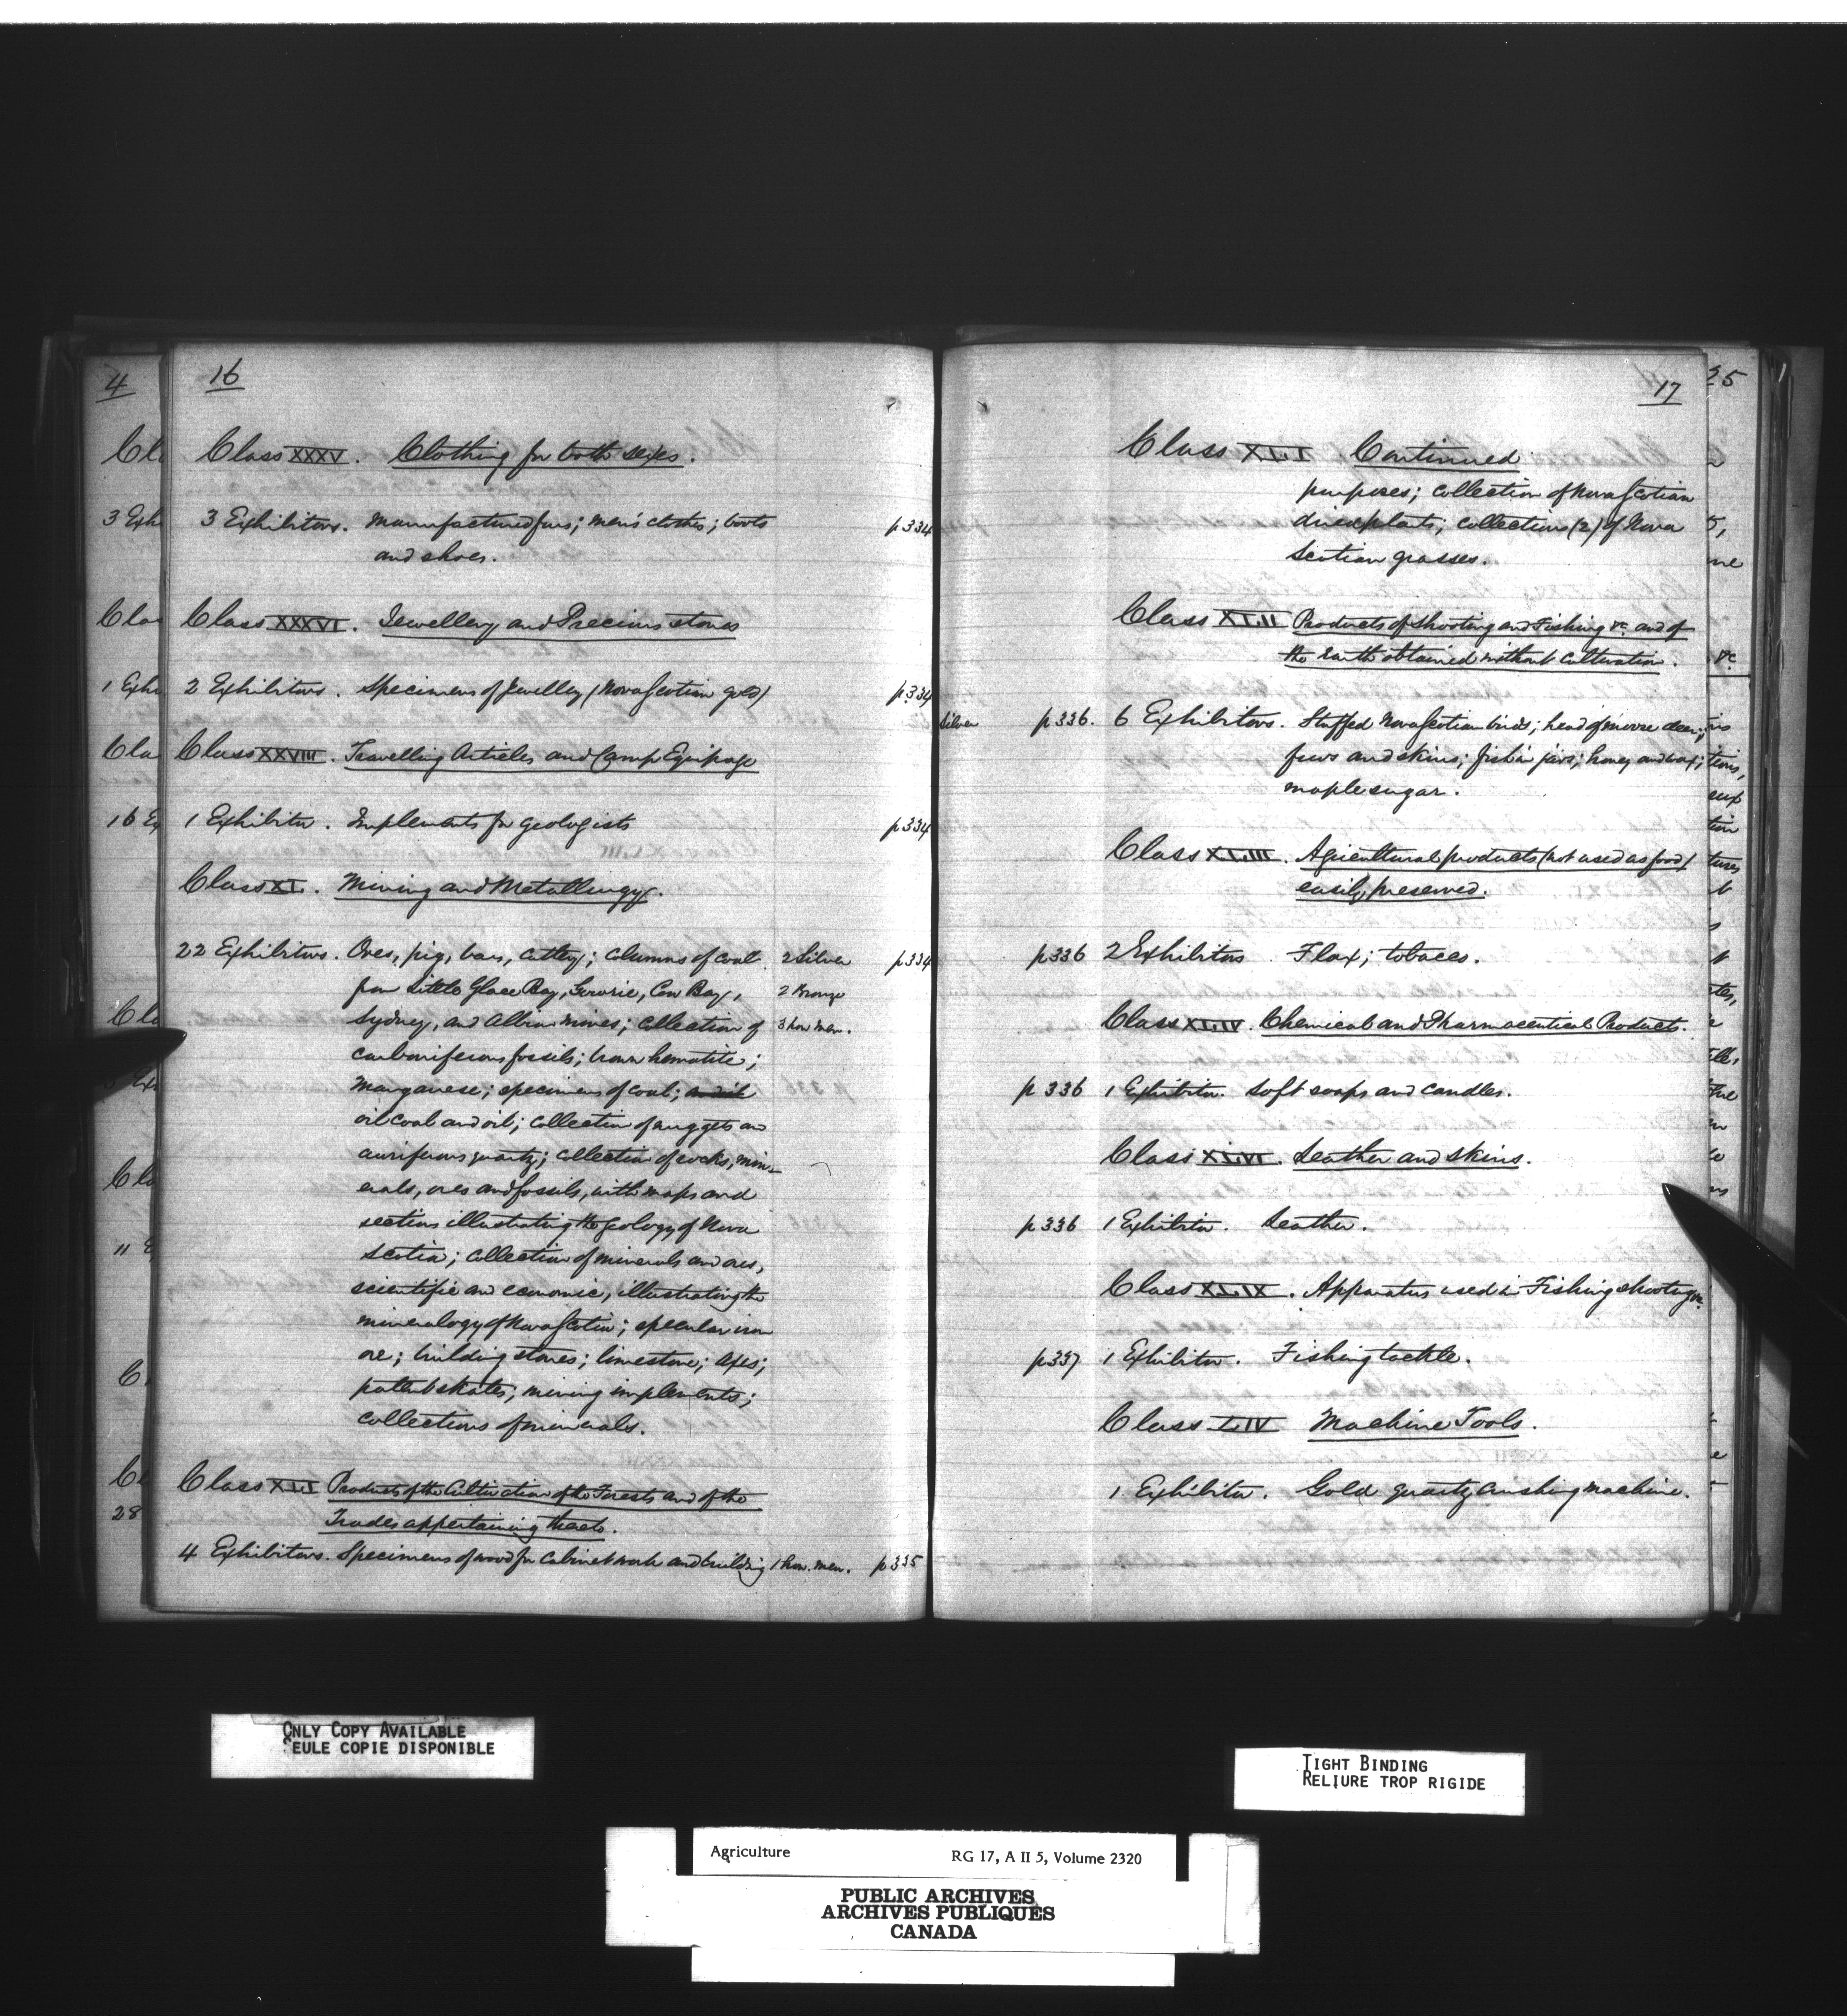 16
Class XXXV. Clothing for both sexes.
3 Exhibitors. Manufactured furs; men's clothes; boots p334
and shoes.
Class XXXVI. Jewellery and Precious stones
2 Exhibitors. Specimens of Jewelley (Nova Scotian gold) p334
Class XXVIII. Travelling Articles and Camp Equipage
1 Exhibitor. Implements for geologists p334
Class XL. Mining and Metallurgy.
22 Exhibitors. Ores, pig, bars, cutlery; columns of coal 2 Silver p334
from Little Glace Bay, Gowrie, Cow Bay, 2 Bronze
Sydney, and Albion mines; collection of 3 hon men.
carboniferous fossils; brown hematite;
Manganese; specimens of coal;
oil coal and oil; collection of nuggets and
auriferous quartz; collection of rocks, min-
erals, ores and fossils, with maps and
sections illustrating the geology of Nova
Scotia; collection of minerals and ores,
scientific and economic, illustrating the
mineralogy of Nova Scotia; specular iron
ore; building stones; limestone; axes;
patent skates; mining implements;
collections of minerals.
Class XLI Products of the Cultivation of the Forests and of the
Trades appertaining thereto.
4 Exhibitors. Specimens of wood for cabinet work and building 1 hon. men. p335
17
Class XLI Continued
purposes; collection of Nova Scotian
dried plants; collections (2) of Nova
Scotian grasses.
Class XLII Products of Shooting and Fishing &c. and of
the Earth obtained without Cultivation.
Silver p336. 6 Exhibitors. Stuffed Nova Scotian birds; head of moose deer;
furs and skins; fish in jars; honey and wax;
maple sugar.
Class XLIII. Agricultural products (not used as food)
easily preserved.
p336 2 Exhibitors Flax; tobacco.
Class XLIV. Chemical and Pharmaceutical Products.
p336 1 Exhibitor. Soft soaps and candles.
Class XLVI. Leather and skins.
p336 1 Exhibitor. Leather.
Class XLIX. Apparatus used in Fishing shooting &c.
p337 1 Exhibitor. Fishing tackle.
Class LIV Machine Tools.
1 Exhibitor. Gold quartz crushing machine.
ONLY COPY AVAILABLE
SEULE COPIE DISPONIBLE
TIGHT BINDING
RELIURE TROP RIGIDE
Agriculture RG 17, A II 5, Volume 2320
PUBLIC ARCHIVES
ARCHIVES PUBLIQUES
CANADA